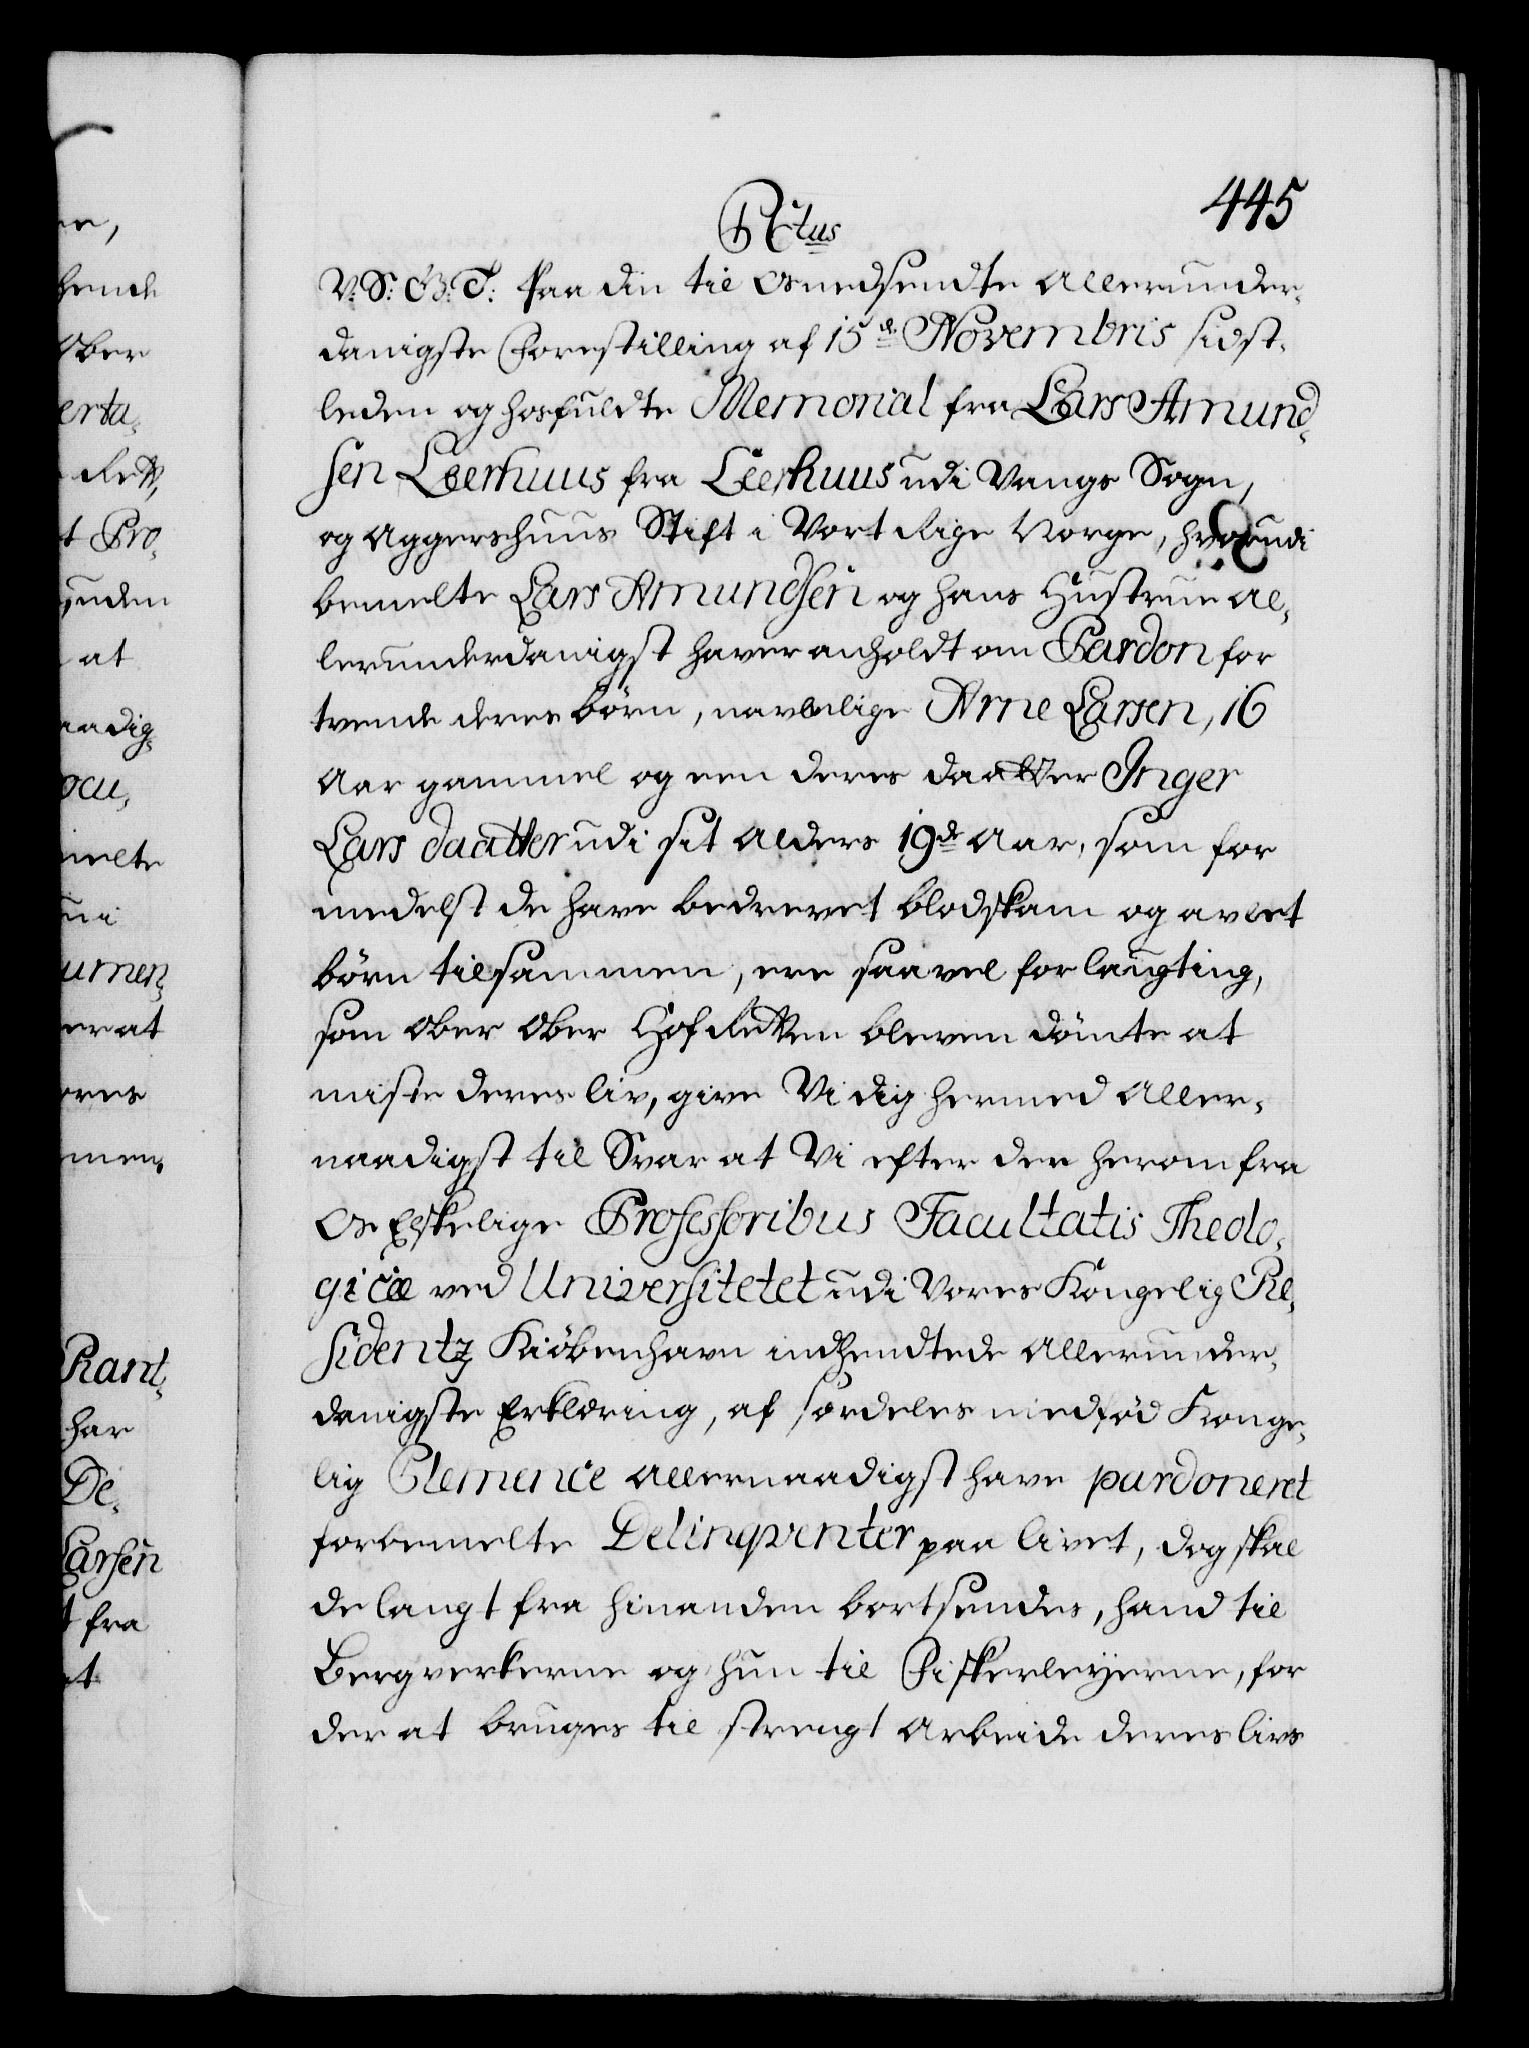 445
Titus
V: S: G: T: Paa din til Os nedsendte Allerunder,
danigste Forestilling af 15de Novembris sidst,
leden og hosfuldte Memorial fra Lars Amund,
sen Leerhuus fra Leerhuus udi Vangs Sogn,
og Aggershuus Stift i Vort Rige Norge, hvorudi
bemelte Lars Amundsen og hans Hustrue al,
lerunderdanigst haver anholdt om Pardon for
tvende deres børn, navnlige Arne Larsen, 16
Aar gammel og een deres daatter Inger
Lars daatter udi sit Alders 19de Aar, som for
medelst de have bedrevet blodskam og avlet
børn tilsammen, ere saavel for laugting,
som Ober Ober Hof Retten bleven dømte at
miste deres liv, give Vi dig hermed Aller,
naadigst til Svar at Vi efter den herom fra
Os Elskelige Professoribus Facultatis Theolo,
gicæ ved Universitetet udi Vores Kongelig Re,
sidentz Kiøbenhavn indhendtede Allerunder,
danigste Erklæring, af særdeles medfød Konge,
lig Clemence Allernaadigst have pardoneret
forbemelte Delinqventer paa livet, dog skal
de langt fra hinanden bortsendes, hand til
Bergverkerne og hun til Fiskerleyerne, for
der at bruges til strengt Arbeide deres livs
hende
Ober
erta,
Rett,
t Pro,
ynden
at
aadig,
ocu,
melte
umen,
er at
ores
men,
Rant,
har
De,
Larsen
t fra